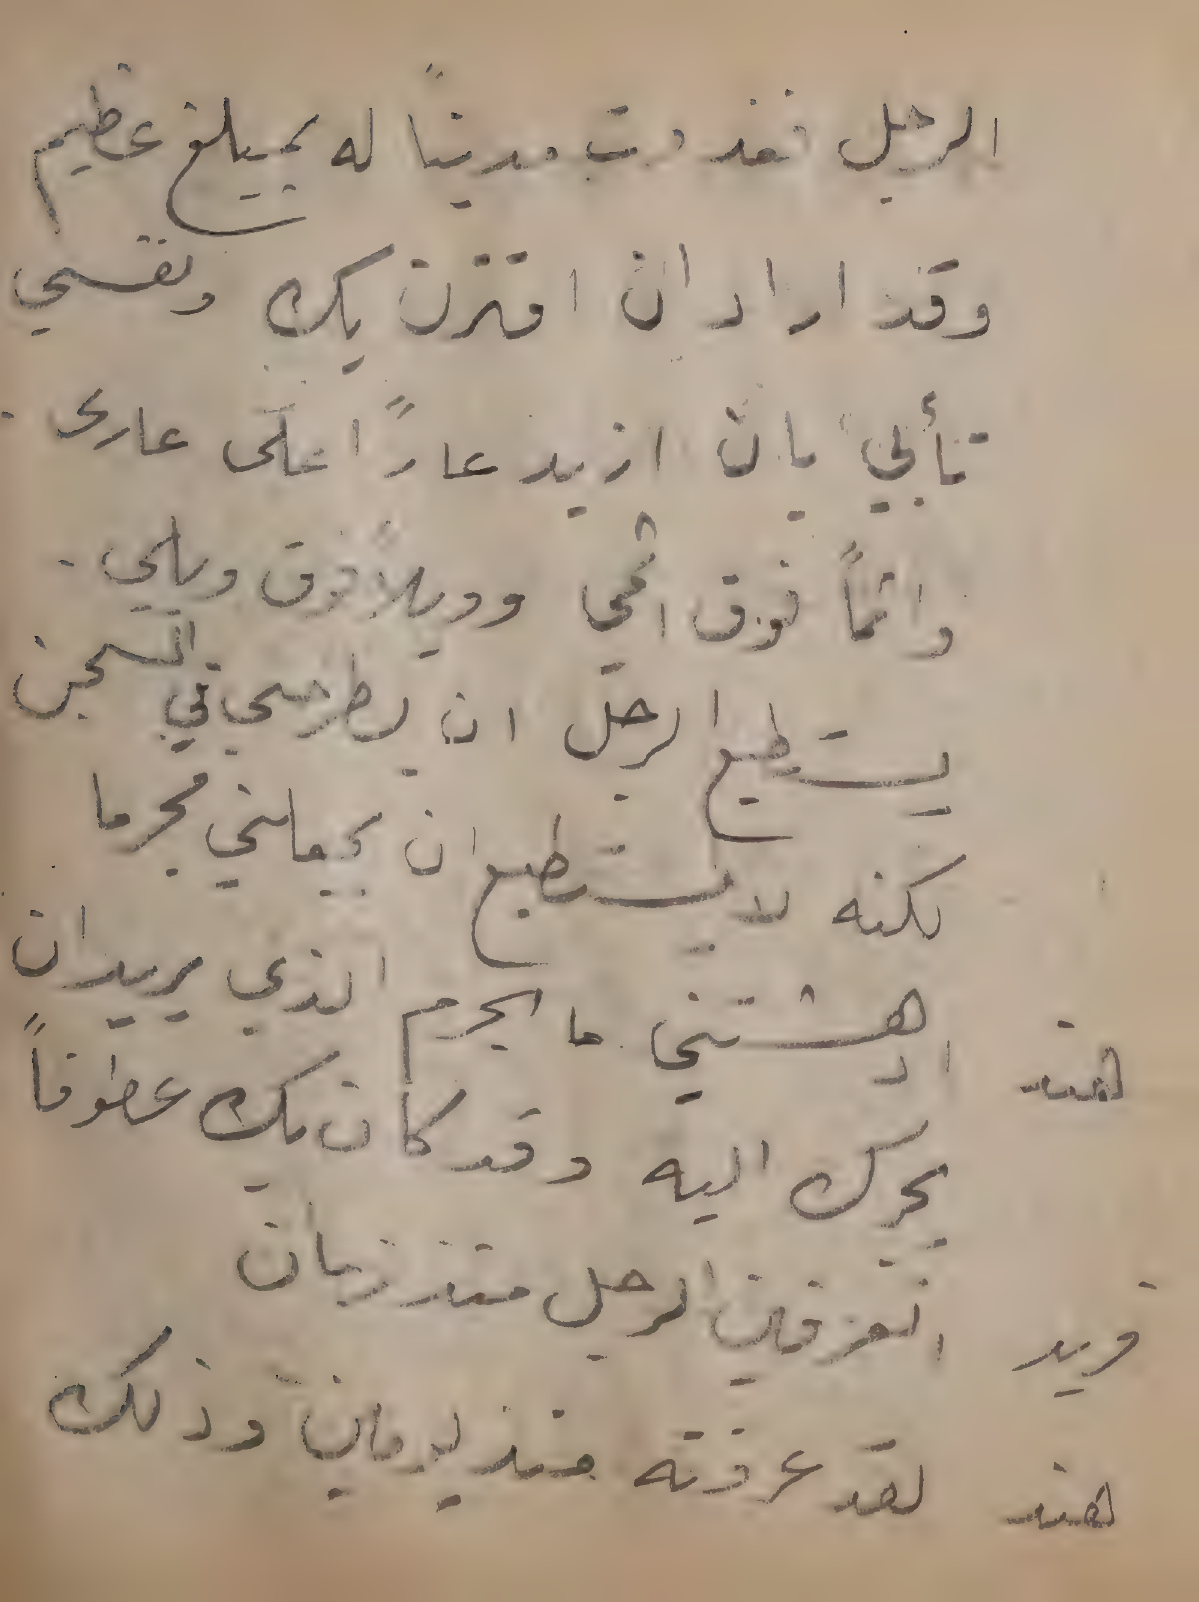 الرجل فغدوت مديناً له بمبلغ عظيم
وقد اراد ان اقترن بك ونفسي
تأبي بان ازيد عاراً على عارى .
واثماً فوق اثمي وويلاً فوق ويلي .
يستطيع الرجل ان يطرحني في السجن
لكنه لا يستطيع ان يجعلني مجرما
هند ادهشتني ما الجرم الذي يريد ان
يجرك اليه وقد كان بك عطوفاً
فريد اتعرفين الرجل منذ زمان
هند لقد عرفته منذ يومين وذلك